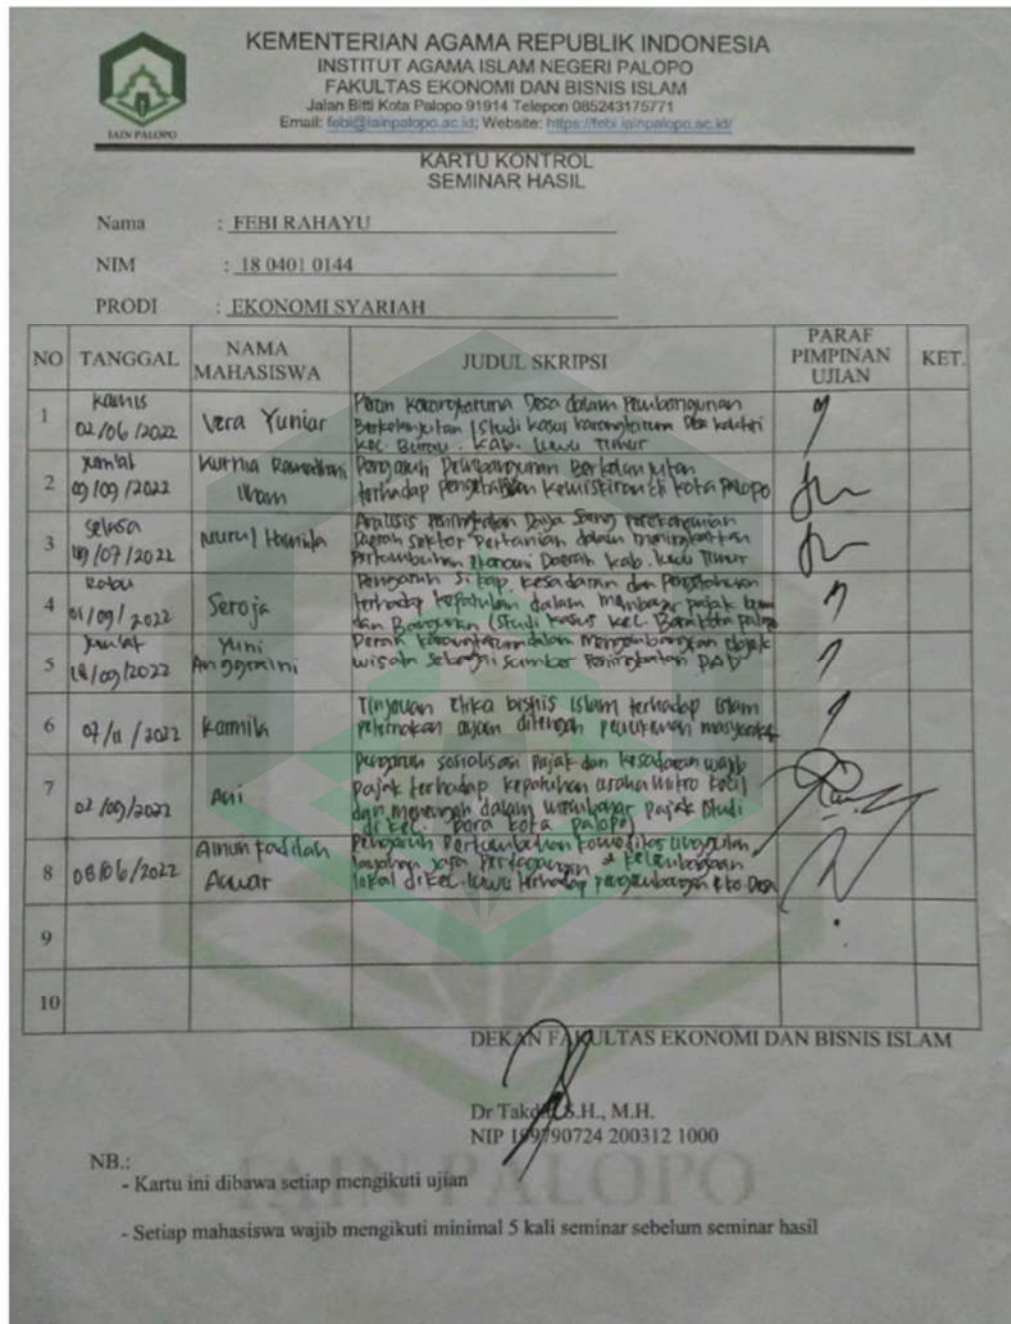 KEMENTERIAN AGAMA REPUBLIK INDONESIA
INSTITUT AGAMA ISLAM NEGERI PALOPO
FAKULTAS EKONOMI DAN BISNIS ISLAM
Jalan Bitti Kota Palopo 91914 Telepon 085243175771
Email: febi@iainpalopo.ac.id; Website: https://febi.iainpalopo.ac.id/
IAIN PALOPO
KARTU KONTROL
SEMINAR HASIL
Nama : FEBI RAHAYU
NIM : 18 0401 0144
PRODI : EKONOMI SYARIAH
NO TANGGAL NAMA MAHASISWA JUDUL SKRIPSI PARAF PIMPINAN UJIAN KET.
1 Kamis 02/06/2022 Vera Yuniar Peran Karangtaruna Desa dalam Pembangunan
Berkelanjutan (Studi kasus karangtaruna Desa
Kec. Burau. Kab. Luwu Timur
2 Jum'at 09/09/2022 Kurnia Ramadhani Ilham Pengaruh Pembangunan Berkelanjutan
terhadap kemiskinan di kota Palopo
3 Selasa /07/2022 Nurul Hamida Analisis Peningkatan Daya Saing Perekonomian
Daerah Sektor Pertanian dalam meningkatkan
Pertumbuhan Ekonomi Daerah kab. Luwu Timur
4 Rabu /09/2022 Seroja Pengaruh Sikap, kesadaran dan Pengetahuan
terhadap kepatuhan dalam Membayar pajak bumi
dan Bangunan (Studi kasus kec. Bara kota palopo
5 Jum'at /09/2022 Yuni Anggraini Peran karangtaruna dalam mengembangkan objek
wisata sebagai sumber Peningkatan PAD
6 07/11/2022 Karmila Tinjauan Etika bisnis islam terhadap islam
peternakan ayam ditengah pemukiman masyarakat
7 02/09/2022 Ani Pengaruh sosialisasi Pajak dan kesadaran wajib
pajak terhadap kepatuhan usaha mikro kecil
dan menengah dalam membayar pajak Studi
di kec. bara kota palopo
8 08/06/2022 Ainun fadilah Pengaruh Pertumbuhan komoditas unggulan
layanan jasa Perdagangan & kelembagaan
lokal di kec. luwu terhadap pengembangan Eko Desa
9
10
DEKAN FAKULTAS EKONOMI DAN BISNIS ISLAM
Dr S.H., M.H.
NIP 199790724 200312 1000
NB.:
- Kartu ini dibawa setiap mengikuti ujian
- Setiap mahasiswa wajib mengikuti minimal 5 kali seminar sebelum seminar hasil
IAIN PALOPO